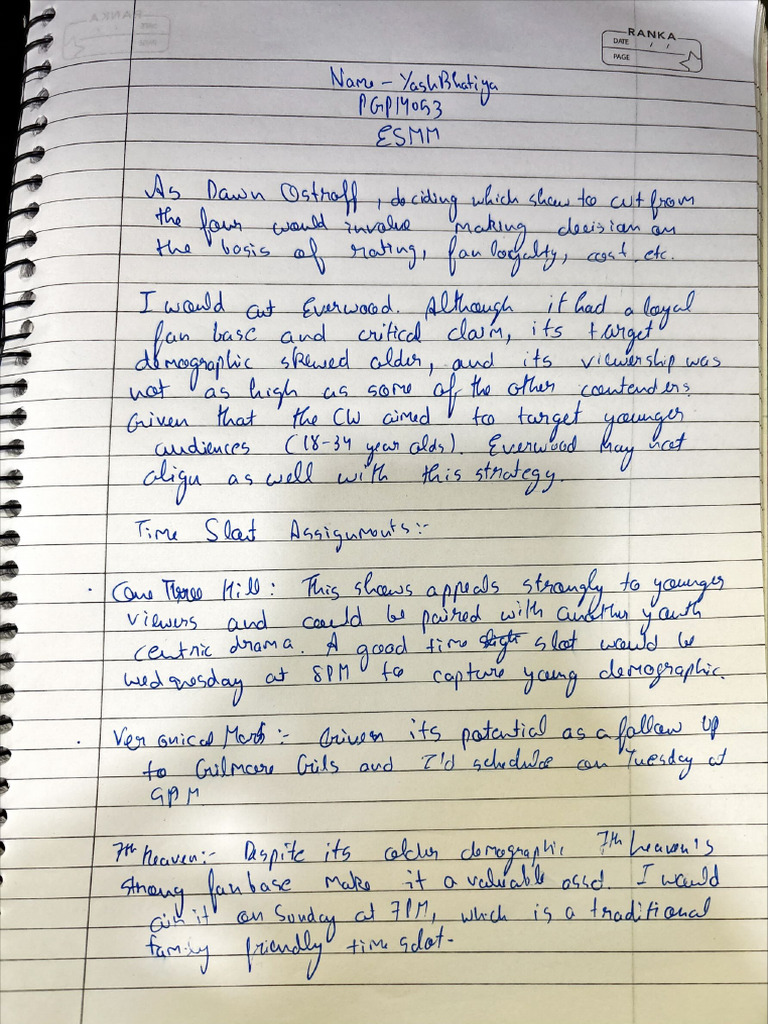 RANKA
DATE / /
PAGE
Name - Yash Bhatiya
PGP14053
ESMM
As Dawn Ostroff, deciding which show to cut from
the four would involve making decision on
the basis of rating, fan loyalty, cost etc.
I would cut Everwood. Although it had a loyal
fan base and critical claim, its target
demographic skewed older, and its viewership was
not as high as some of the other contenders.
Given that the CW aimed to target younger
audiences (18-34 year olds). Everwood may not
align as well with this strategy.
Time Slot Assignments:-
· One Three Hill: This shows appeals strongly to younger
viewers and could be paired with another youth
centric drama. A good time slot would be
wednesday at 8PM to capture young demographic.
· Veronica Mars:- Given its potential as a follow up
to Gilmore Girls and I'd schedule on Tuesday at
9PM
7th heaven:- Despite its older demographic 7th heaven's
strong fanbase make it a valuable asset. I would
air it on Sunday at 7PM, which is a traditional
family friendly time slot-